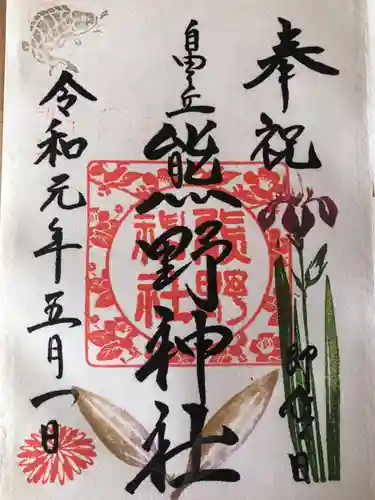 奉祝
即位の日
自由ヶ丘
熊野神社
熊野神社
令和元年五月一日